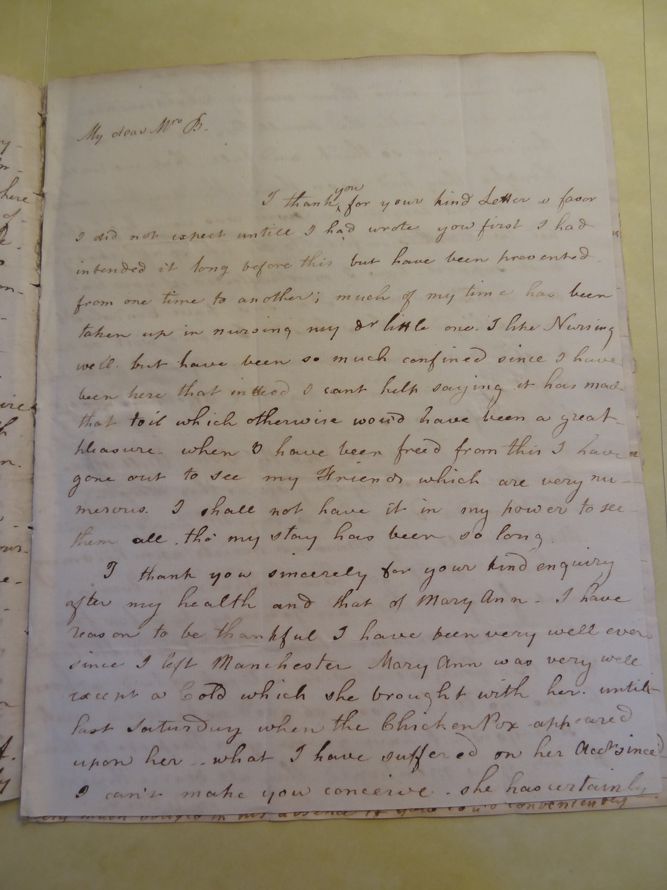 My dear Mrs B.
I thank you for your kind Letter & favor
I did not expect untill I had wrote you first I had
intended it long before this but have been prevented
from one time to another; much of my time has been
taken up in nursing my dr little one. I like Nursing
well. but have been so much confined since I have
been here that indeed I cant help saying it has mad
that toil which otherwise would have been a great
pleasure. when I have been freed from this I have
gone out to see my Friends which are very nu-
merous. I shall not have it in my power to see
them all. tho' my stay has been so long.
I thank you sincerely for your kind enquiry
after my health and that of Mary Ann. I have
reason to be thankful I have been very well ever
since I left Manchester Mary Ann was very well
except a Cold which she brought with her. untill
last Saturday when the Chicken Pox appeared
upon her. what I have suffered on her Acct since
I can't make you conceive. she has certainly